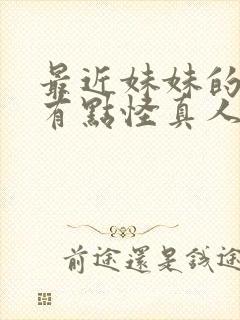 最近妹妹的
有點怪真人
前途還是錢途